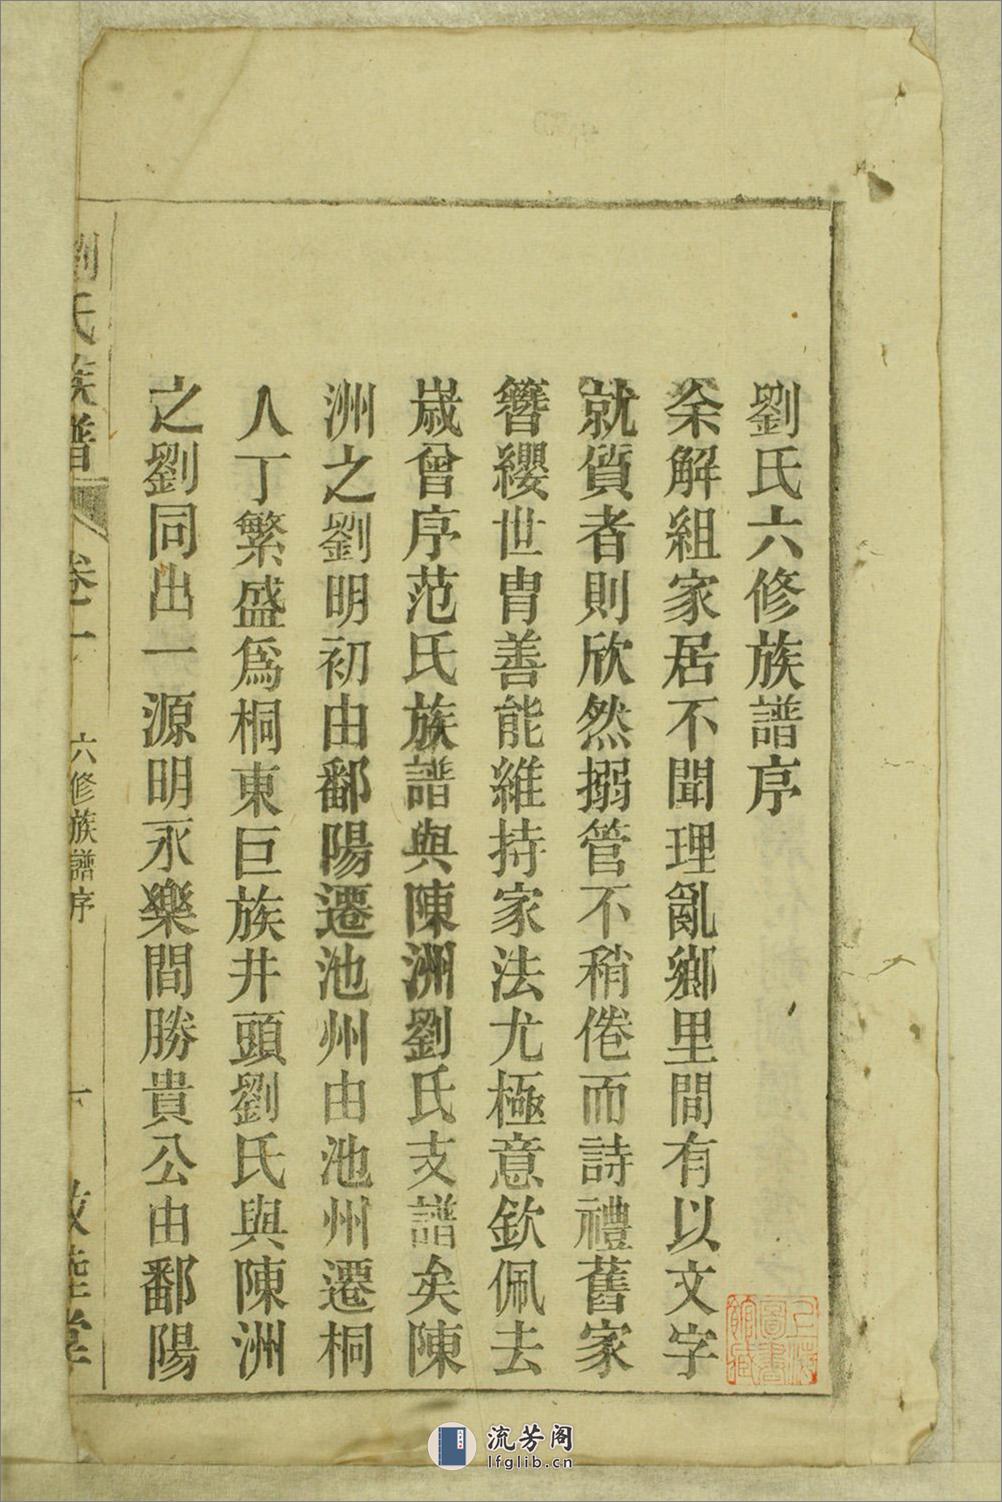 劉氏六修族譜序
余解組家居不聞理亂鄉里間有以文字
就質者則欣然搦管不稍倦而詩禮舊家
簪纓世胄善能維持家法尤極意欽佩去
歲曾序范氏族譜與陳洲劉氏支譜矣陳
洲之劉明初由鄱陽遷池州由池州遷桐
人丁繁盛爲桐東巨族井頭劉氏與陳洲
之劉同出一源明永樂間勝貴公由鄱陽
劉氏族譜
卷一
六修族譜序
一
敦睦堂
上海圖書館藏
流芳阁
lfglib.cn